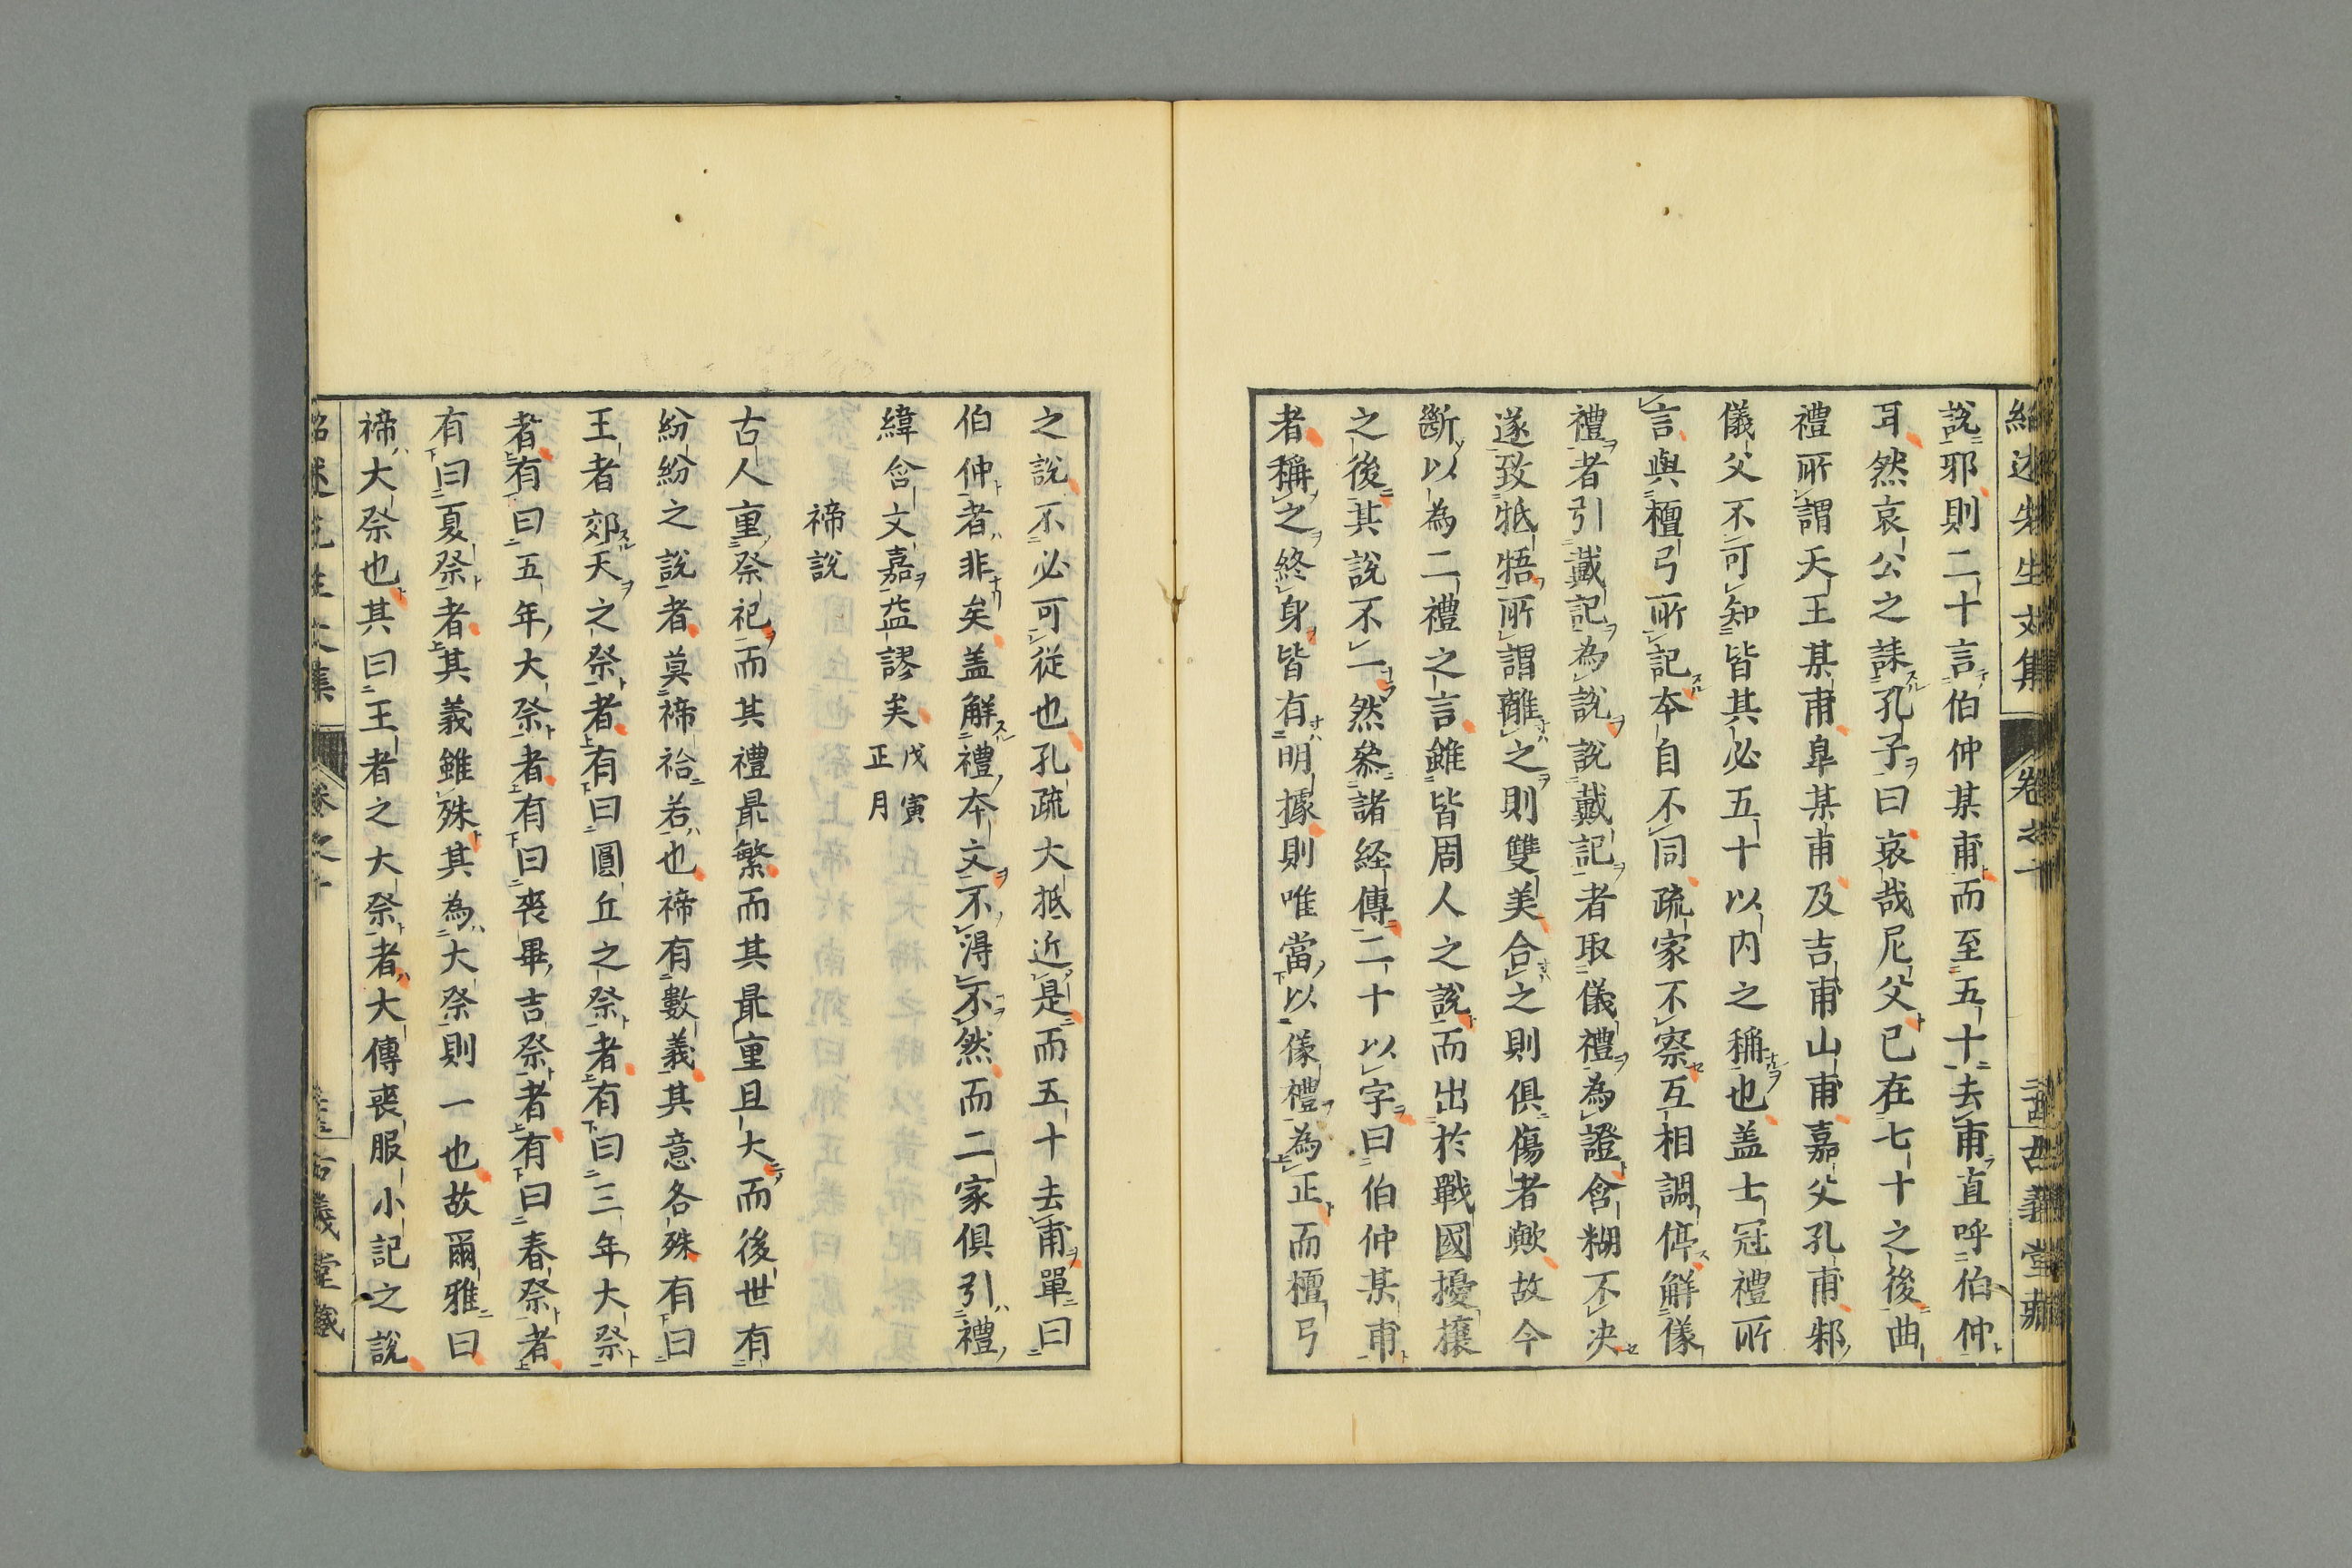 紹述先生文集 卷之十 古義堂藏
說耶則二十言伯仲某甫而至五十去甫直呼伯仲
耳然哀公之誄孔子曰哀哉尼父已在七十之後曲
禮所謂天王某甫皐某甫及吉甫山甫嘉父孔甫邾
儀父不可知皆其必五十以内之稱也盖士冠禮所
言與檀弓所記夲自不同疏家不察互相調停解儀
禮者引戴記為說說戴記者取儀禮為證含糊不决
遂致牴牾所謂離之則雙美合之則俱傷者歟故今
斷以為二禮之言雖皆周人之說而出於戰國擾攘
之後其說不一然叅諸経傳二十以字曰伯仲某甫
者稱之終身皆有明據則唯當以儀禮為正而檀弓
之說不必可從也孔疏大抵近是而五十去甫單曰
伯仲者非矣盖解禮夲文不得不然而二家俱引禮
緯含文嘉益謬矣 戊寅正月
禘說
古人重祭祀而其禮最繁而其最重且大而後世有
紛紛之說者莫禘祫若也禘有數義其意各殊有曰
王者郊天之祭者有曰圓丘之祭者有曰三年大祭
者有曰五年大祭者有曰喪畢吉祭者有曰春祭者
有曰夏祭者其義雖殊其為大祭則一也故爾雅曰
禘大祭也其曰王者之大祭者大傳喪服小記之說
紹述先生文集 卷之十 古義堂藏